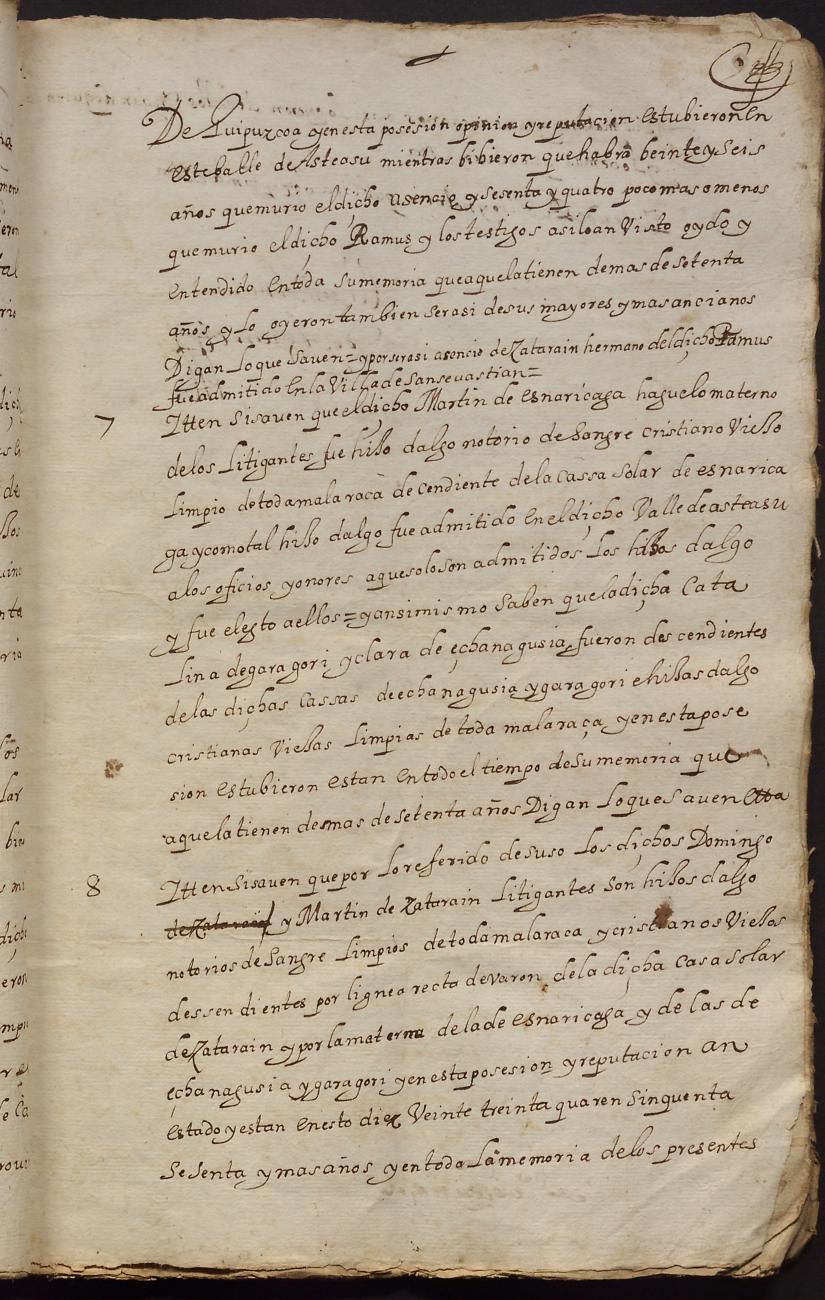 De Guipuzcoa y en esta posesion opinion y reputacion Estubieron En
este balle de Asteasu mientras bibieron que habra beinte y Seis
años que murio el dicho asencio y sesenta y quatro poco mas o menos
que murio el dicho Ramus y los testigos asi lo an Visto oydo y
Entendido En toda su memoria que aquela tienen de mas de setenta
años y lo oyeron tambien ser asi de sus mayores y mas ancianos
Digan Lo que saven = y por ser asi asencio de Zatarain hermano del dicho Ramus
fue admitido En la Villa de San sevastian =
7 Itten Si saven que el dicho Martin de Esnaricaga haguelo materno
de los Litigantes fue hijo dalgo notorio de Sangre cristiano Viejo
Limpio de toda mala raca decendiente de la Cassa Solar de esnarica
ga y como tal hijo dalgo fue admitido En el dicho Valle de asteasu
a los oficios y onores a que solo son admitidos Los hijos dalgo
y fue elegto a ellos = y ansi mismo Saben que la dicha Cata
Lina de garagori y clara de echanagusia fueron descendientes
de las dichas Cassas de echanagusia y garagori e hijas dalgo
cristianas Viejas Limpias de toda mala raça y en esta pose
sion Estubieron Estan En todo el tiempo de Su memoria que
aquela tienen de mas de setenta años Digan Lo que Saven
8 Itten Si saven que por Lo referido de suso Los dichos Domingo
de Zatarain y Martin de Zatarain Litigantes Son hijos dalgo
notorios de Sangre Limpios de toda mala raca y cristianos Viejos
dessendientes por lignea recta de varon de la dicha Casa Solar
de Zatarain y por la materna de la de Esnaricaga y de las de
echanagusia y garagori y en esta posesion y reputacion an
Estado y estan En esto diez Veinte treinta quaren Sinquenta
Sesenta y mas años y en toda La memoria de los presentes